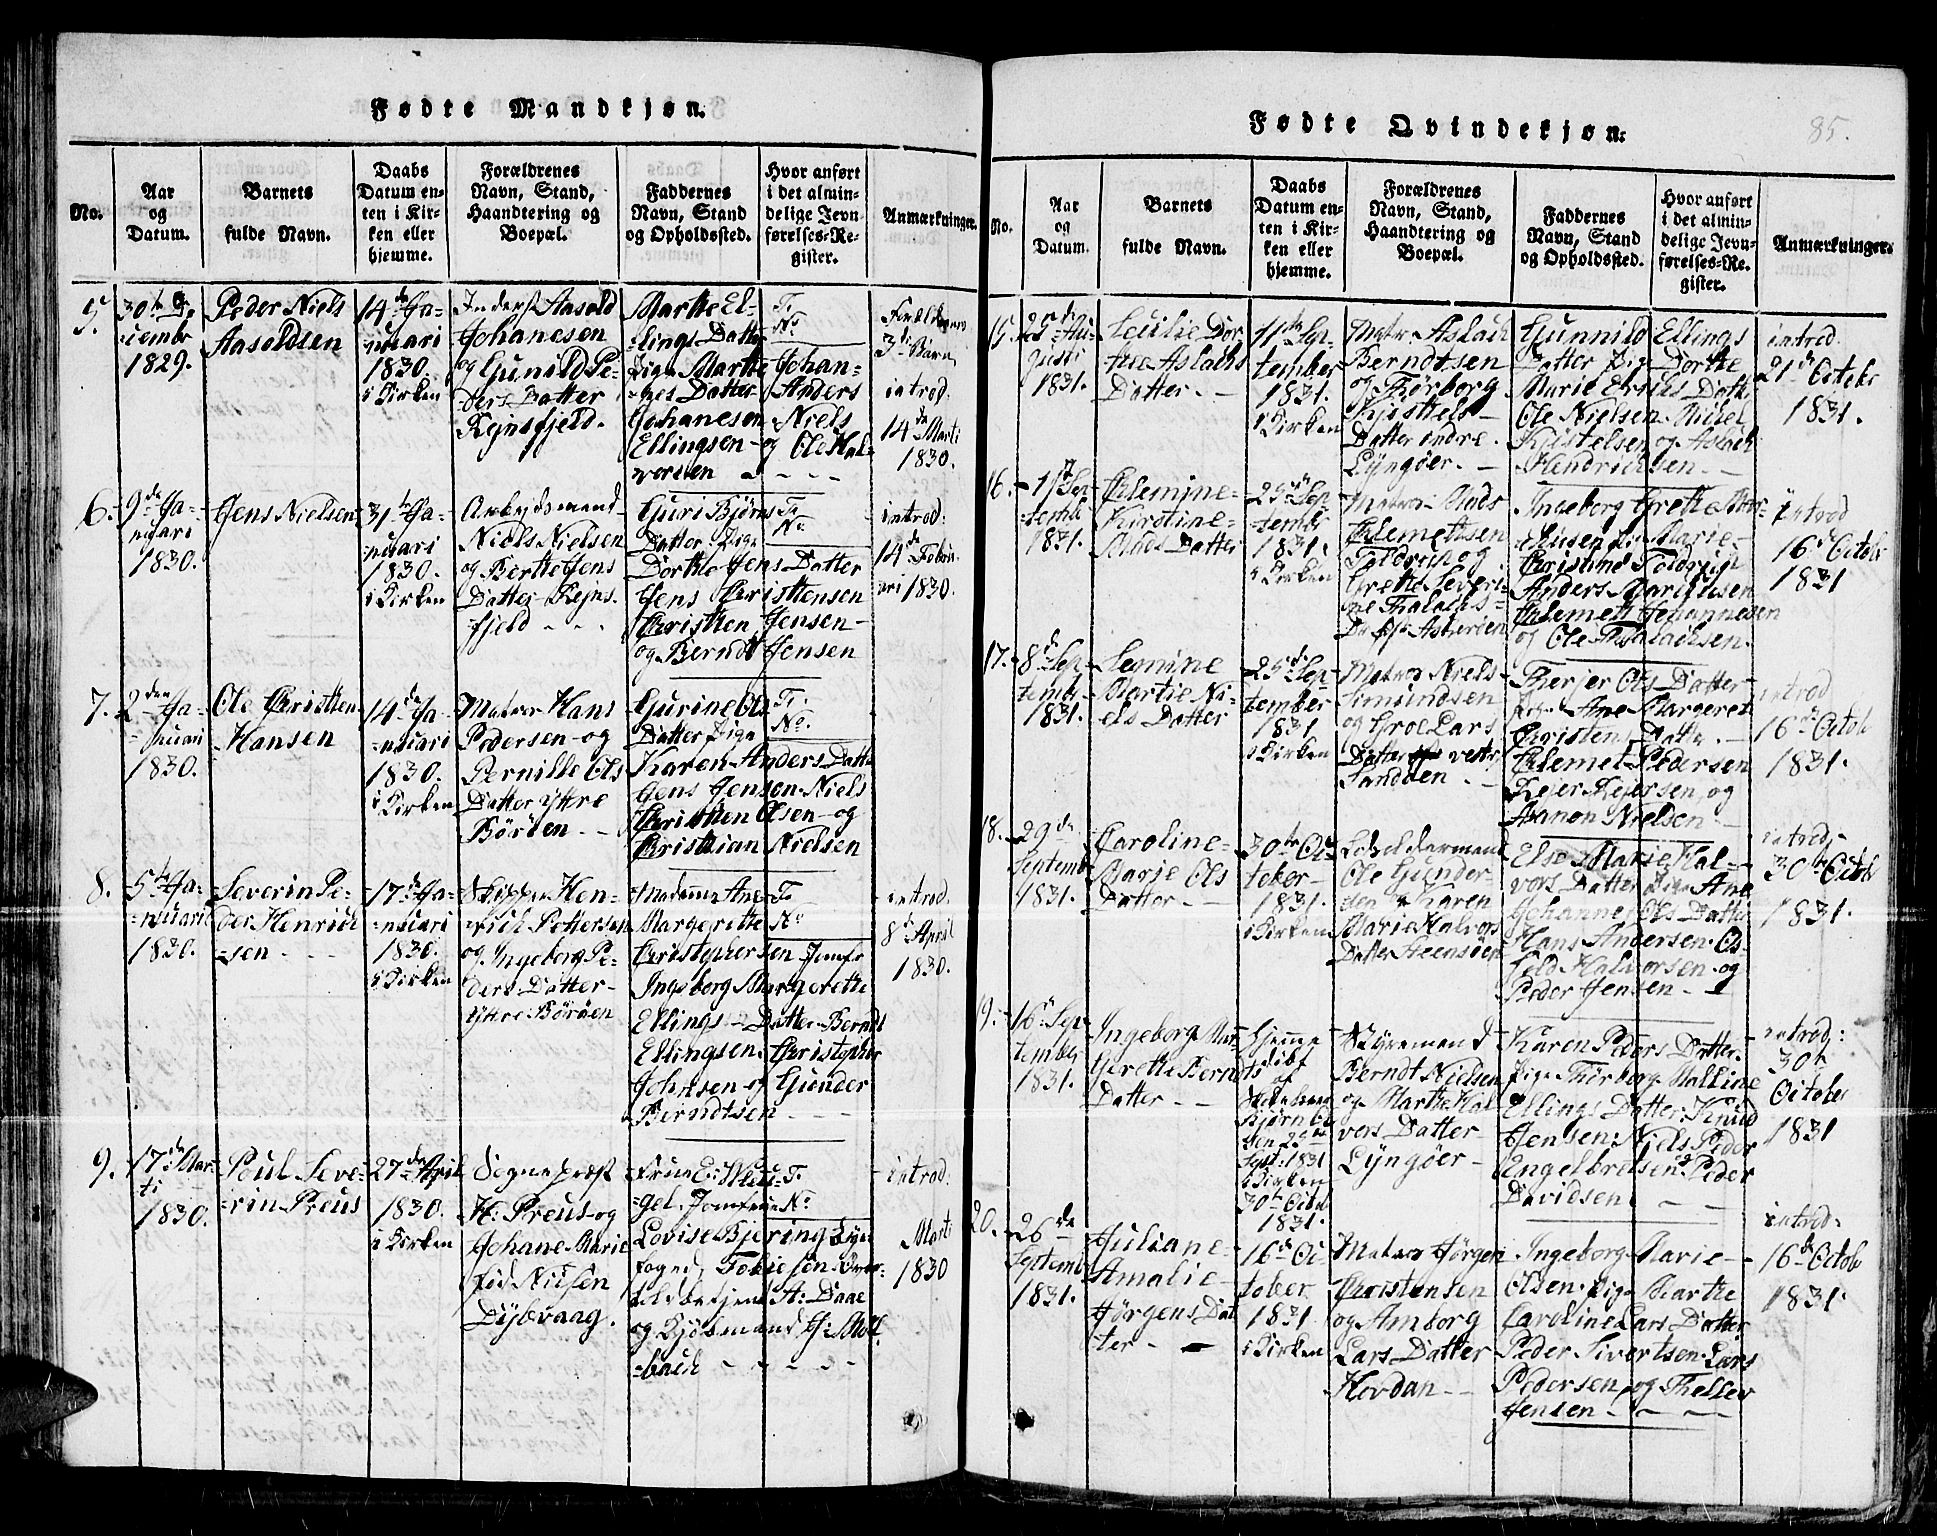 Fødte Mandkjøn.
No.
Aar
og
Datum.
Barnets
fulde Navn.
Daabs
Datum en-
ten i Kir-
ken eller
hjemme.
Forældrenes
Navn, Stand,
Haandtering og
Boepæl.
Faddernes
Navn, Stand
og Opholdssted.
Hvor anført
i det almin-
delige Jevn-
førelses-Re-
gister.
Anmærkninger.
5.
30te De-
cembr
1829.
Peder Niels
Aasoldsen
14de Ja-
nuari
1830.
i Kirken
Inderst Aasold
Johanesen
og Gunild Pe-
ders Datter
Rejnsfjeld.
Marthe El-
lings Datter
Pige Marthe
Datter
Johanesen
Ellingsen
Fr.
No.
Johan-
Anders
Niels
og Ole Hal-
versen
3die Barn
introd.
14de Marti
1830.
6.
9de Ja-
nuari
1830.
Jens Nielsen
31te Ja-
nuari
1830.
i Kirken
Arbejdsmand
Niels Nielsen
og Berthe Jens
Datter Rejns-
fjeld
Guri Bjørns
Datter Pige
Dorthe Jens Datter
Jens Christensen
Christen Jensen
og Berndt Jensen
Fr.
No.
introd:
14de Febru-
ari 1830.
7.
2den Ja-
nuari
1830.
Ole Christen
Hansen
14de Ja-
nuari
1830.
i Kirken
Matros Hans
Pedersen og
Pernille Ols
Datter Yttre
Börøen
Gurine Ols
Datter Pige
Karen Anders Datter
Jens Jensen Niels
Christen Olsen og
Christian Nielsen
Fr.
No.
8.
5te Ja-
nuari
1830.
Severin Pe-
der Henrich
sen
17de Ja-
nuari
1830.
i Kirken
Skipper Hen-
rich Pettersen
og Ingeborg Pe-
ders Datter
Yttre Börøen
Madame Ane
Margerethe
Christophersen Jomfr
Ingeborg Margerethe
Ellings Datter Berndt
Ellingsen. Christopher
Johnsen og Gunder
Berndtsen
Fr.
No.
introd.
8de April
1830.
9.
17de Mar-
ti
1830.
Poul Seve-
rin Preus
27de April
1830.
i Kirken
Sognepræst
H: Preus og
Johane Marie
fød Nilsen
Dybvaag.
Frue E:
gel. Jomfrue
Lovise Bjering
foged Tobiesen
A: Daae
og Kjøbmand J: Møl-
bach
Fr.
No.
introd.
Marti
1830
Fødte Qvindekjøn.
85.
No.
Aar
og
Datum.
Barnets
fulde Navn.
Daabs
Datum en-
ten i Kir-
ken eller
hjemme.
Forældrenes
Navn, Stand,
Haandtering og
Boepæl.
Faddernes
Navn, Stand
og Opholdssted.
Hvor anført
i det almin-
delige Jevn-
førelses-Re-
gister.
Anmærkninger.
15.
25de Au-
gusti
1831.
Cecilie Dor-
the Aslachs
Datter
11te Sep-
tember
1831.
i Kirken
Matr: Aslach
Berndtsen
og Thorborg
Kjsttels
Datter indre
Lyngøer.
Gunnild Ellings
Datter Pige Dorthe
Marie Datter
Ole Nielsen
Kistelsen og Aslach
Hendrichsen
introd.
21de Octobr
1831.
16.
1ste Sep-
tembr
1831.
Clemine
Kirstine
Mads Datter
25de Sep-
tembr
1831.
i Kirken
Matros Mads
Clemetsen
og
Grethe Severi-
ne
Datter
Ingeborg Grethe
Pige Marie
Anders Mariusen
Clemet Johannesen
og Ole
introd
16de Octobr
1831
17.
8de Sep-
tembr
1831.
Semine
Martie Ni-
els Datter
25de Sep-
tember
1831
i Kirken
Matros Niels
Simundsen
og Groe Lars
Datter vestr
Sandøen
Therjer Ols Datter
Pige Ane Margeret
Christens Datter
Clemet Pedersen
Rejer Rejersen og
Aanon Nielsen
introd
16de Octobr
1831.
18.
29de
Septembr
1831.
Caroline
Marie Ols
Datter
30te Oc-
tober
1831.
i Kirken
Ole Gunder-
sen Karen
Marie Halvors
Datter Steensøen
Else Marie Hal-
vors Datter Pige Ane
Johannes Ols Datter
Hans Andersen. Os-
feld Halvorsen og
Peder Jensen
introd:
30te Octobr
1831.
19.
16de Sep-
tember
1831.
Ingeborg Mar-
gerethe Berndts
Datter
hjemme
døbt
af
den 25de
Sept: 1831
i Kirken
30te Octobr
1831.
Styrmand
Berndt Nielsen
og Marthe Hal-
vers Datter
Lyngøer
Karen Peders Datter
Pige Thorborg Malline
Ellings Datter. Knud
Jensen. Niels Peder
Engelbretsen og Peder
Davidsen
introd:
30te
October
1831
20.
26de
Septembr
1831.
Juliane
Amalie
Jørgens Dat-
ter
16de Oc-
tober
1831
i Kirken
Matros Jørgen
Christensen
og Amborg
Lars Datter
Hovdan
Ingeborg Marie
Olsen. Pige Marthe
Caroline Lars Datter
Peder Sivertsen. Lars
Pedersen og Thellev
Jensen
introd:
16de Octobr
1831.